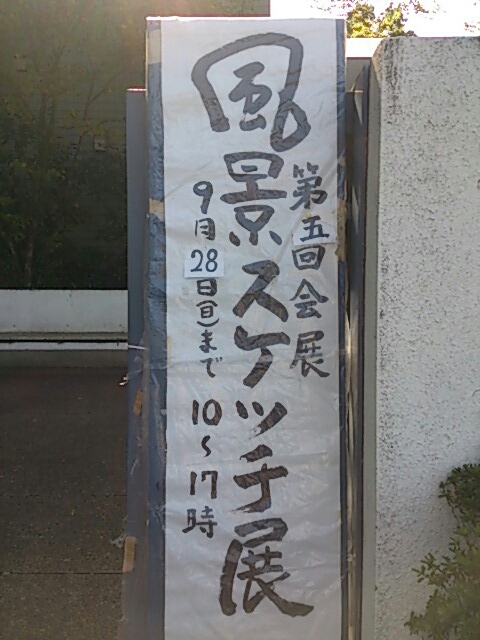 第五回会展
風景スケッチ展
9月28日(日)まで 10〜17時